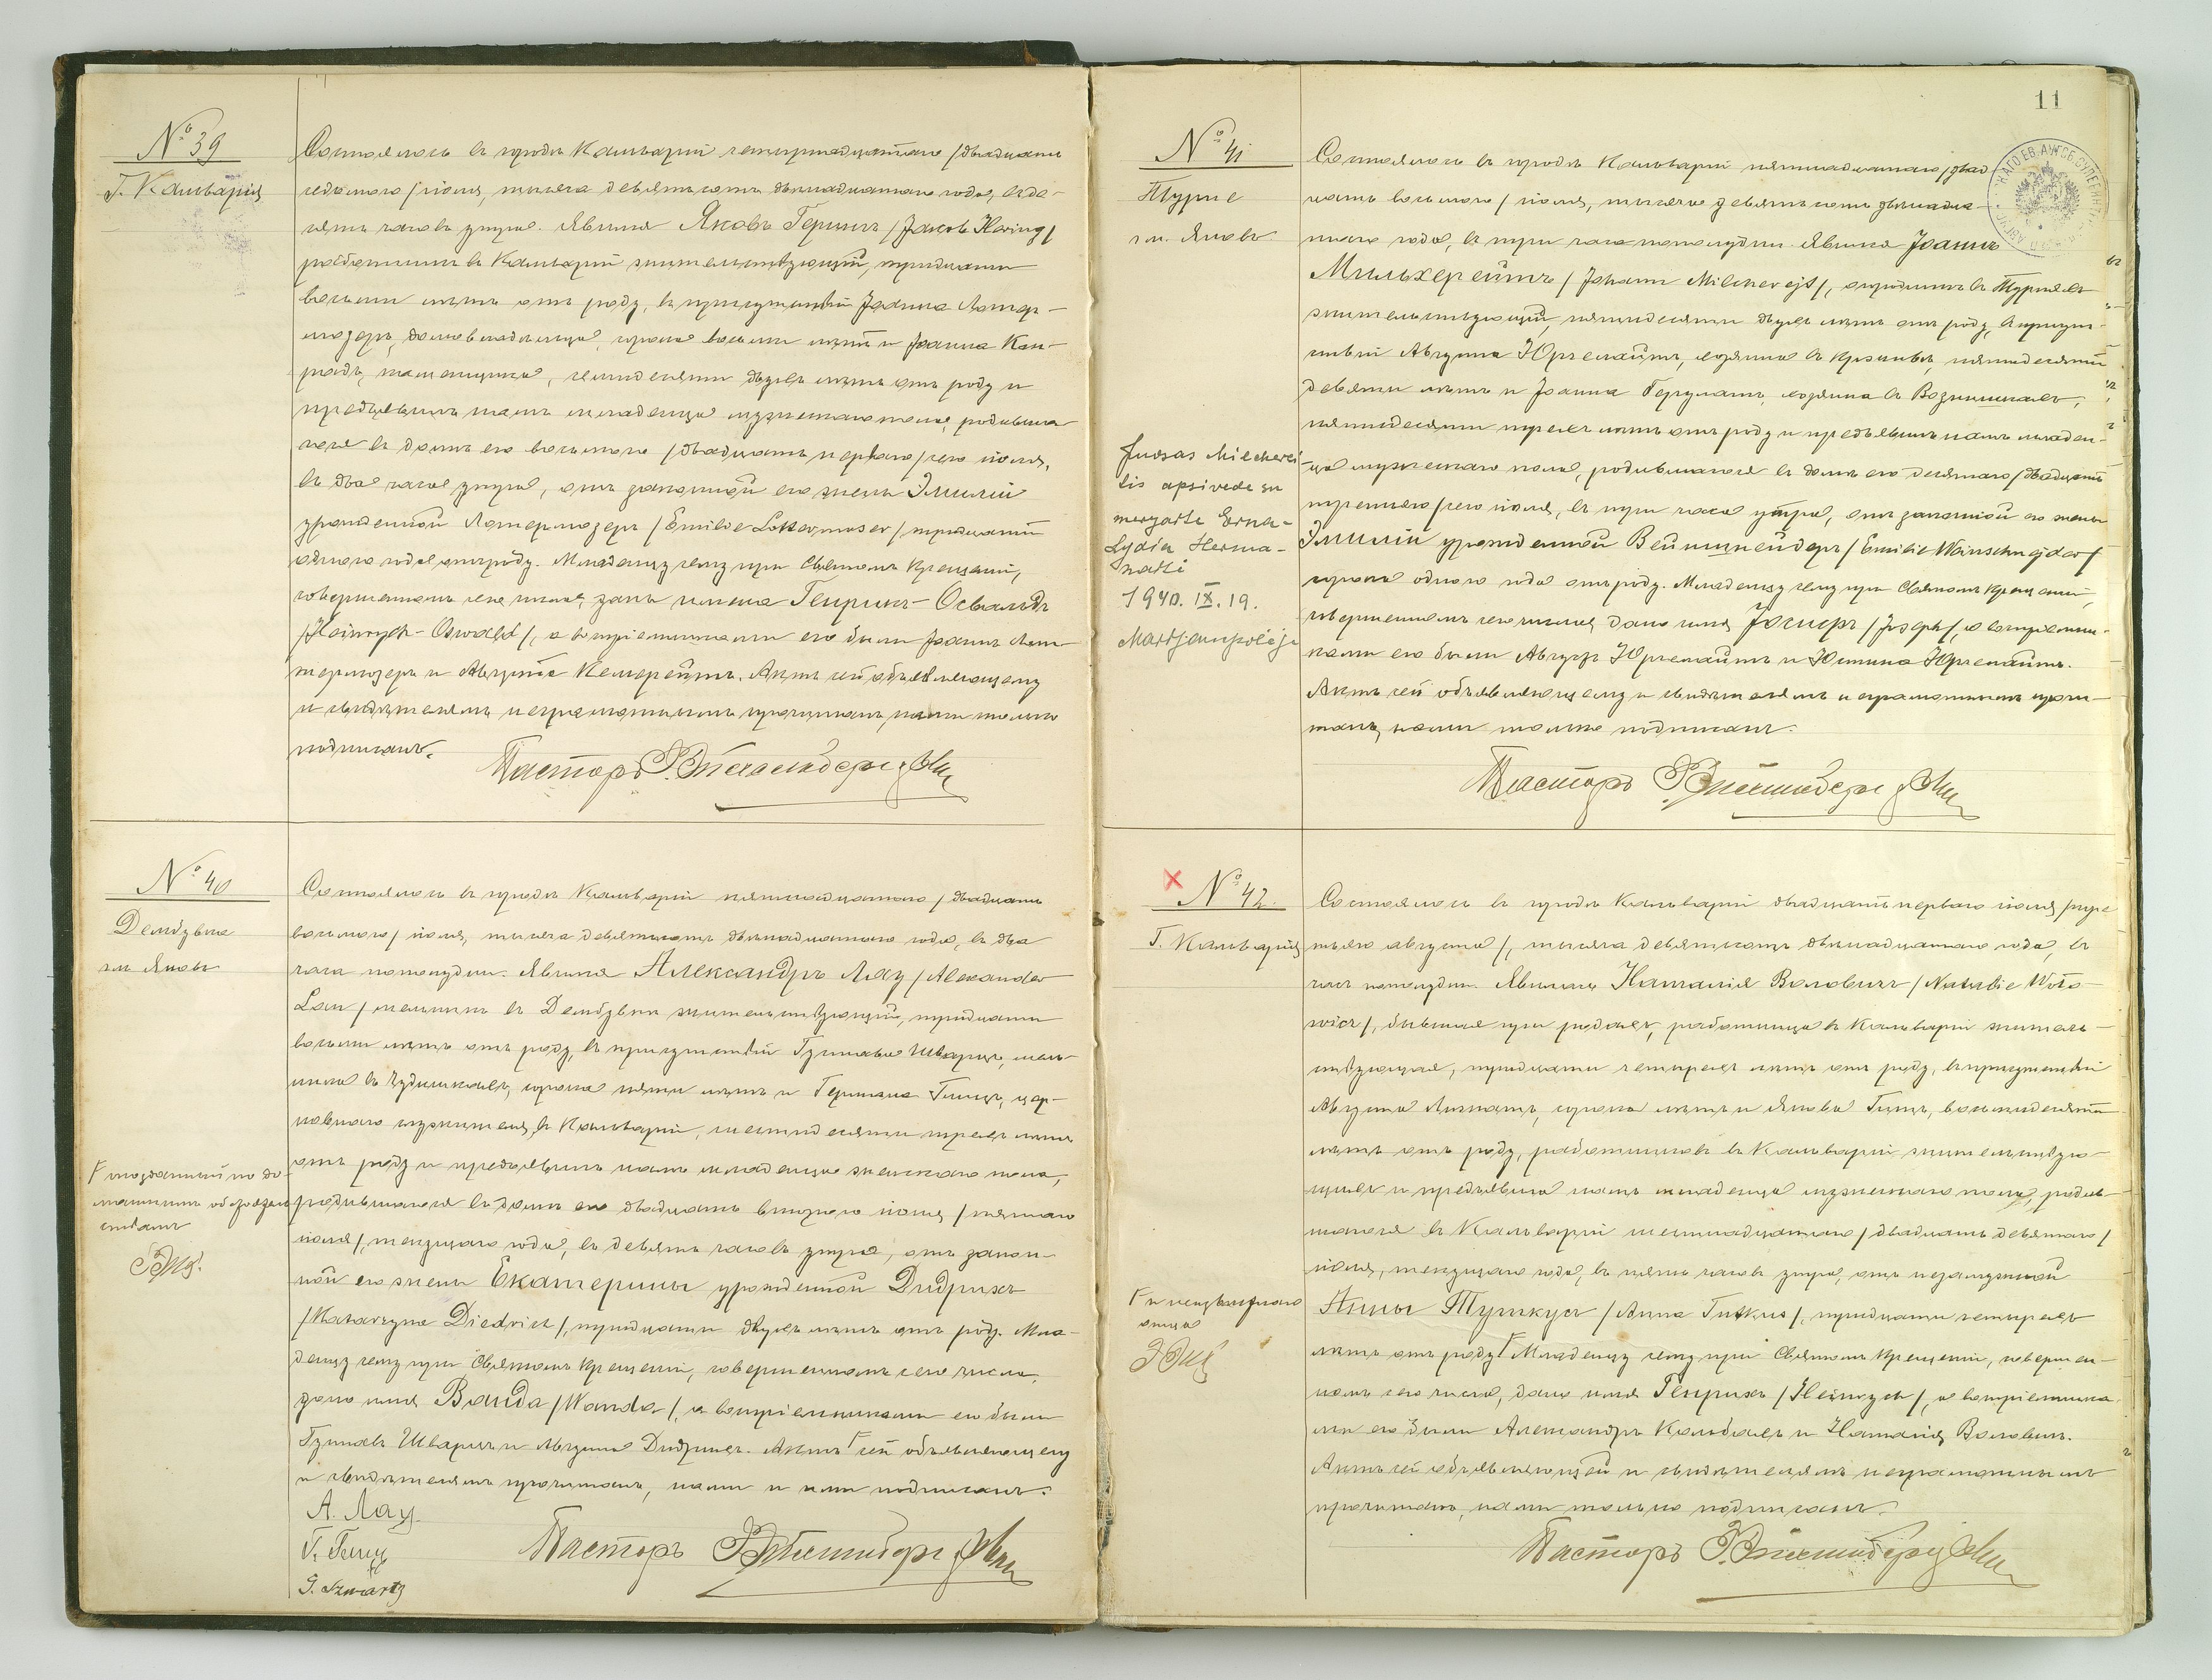 № 39
Г. Кальварія
Состоялось въ городѣ Кальваріи четырнадцатаго /двадцать
седьмого/ іюля, тысяча девятьсотъ двѣнадцатаго года, въ де-
сять часовъ утра. Явился Яковъ Герингъ /Jakob Hering/
работникъ въ Кальваріи жительствующій, тридцати
восьми лѣтъ отъ роду, въ присутствіи Іоанна Лотер-
мозеръ, домовладельца, сорока восьми лѣтъ и Іоанна Кон-
радъ, семидесяти двухъ лѣтъ отъ роду и
предъявилъ намъ младенца мужескаго пола, родивша-
гося въ домѣ его восьмого /двадцать перваго/ сего іюля,
въ два часа утра, отъ законной его жены Эмиліи
урожденной Лотермозеръ /Emilie Lottermoser/ тридцати
одного года отъ роду. Младенцу сему при Святомъ Крещеніи,
совершенномъ сего числа, даны имена Генрихъ-Освальдъ
/Heinrych-Oswald/, а воспріемниками его были Іоаннъ Лот-
термозеръ и Августа Кемерейтъ. Актъ сей объявляющему
и свидѣтелямъ неграмотнымъ прочитанъ, нами только
подписанъ.
Пасторъ
№ 40
Дембувка
гм. Яновъ
Состоялось въ городѣ Кальваріи пятнадцатаго /двадцать
восьмого/ іюля, тысяча девятьсотъ двѣнадцатаго года, въ два
часа пополудни. Явился Александръ Лау /Alexander
Lau/ мельникъ въ Дембувкѣ жительствующій, тридцати
восьми лѣтъ отъ роду, въ присутствіи Густава Шварцъ, мель-
ника въ сорока пяти лѣтъ и Германа Гинцъ, цер-
ковнаго служителя, въ Кальваріи, шестидесяти трехъ лѣтъ
отъ роду и предъявилъ намъ младенца женскаго пола,
родившагося въ домѣ его двадцать втораго іюня /пятаго
іюля/, текущаго года, въ девять часовъ утра, отъ закон-
ной его жены Екатерины урожденной Дидрихъ
/Katarzyna Diedrich/, тридцати двухъ лѣтъ отъ роду. Мла-
денцу сему при Святомъ Крещеніи, совершенномъ сего числа,
дано имя Ванда /Wanda/, а воспріемниками его были
Густавъ Шварцъ и Августа Дидрихъ. Актъ Г сей объявляющему
и свидѣтелямъ прочитанъ, нами и ими подписанъ.
Г опозданный по до-
машнимъ обстоятель-
ствамъ
А. Лау.
Г. Гинц
G. Szwartz
Пасторъ
11
№ 41
Турше
гм. Яновъ
Состоялось въ городѣ Кальваріи пятнадцатаго /двад-
цать восьмого/ іюля, тысяча девятьсотъ двѣнадца-
таго года, въ три часа пополудни. Явился Іоаннъ
Мильхерейтъ /Johann Milcherejt/, огородникъ въ
жительствующій, пятидесяти двухъ лѣтъ отъ роду, въ присут-
ствіи Августа Юргелайтъ, хозяина въ пятидесяти
девяти лѣтъ и Іоанна Герулатъ, хозяина въ
пятидесяти трехъ лѣтъ отъ роду и предъявилъ намъ младен-
ца мужескаго пола, родившагося въ домѣ его десятаго /двадцать
третьяго/ сего іюля, въ три часа утра, отъ законной его жены
Эмиліи урожденной Вейншнейдеръ /Emilie Wainschnejder/
сорока одного года отъ роду. Младенцу сему при Святомъ Крещеніи,
совершенномъ сего числа, дано имя Іосифъ /Joseph/, а воспріемни-
ками его были Августъ Юргелайтъ и Юлина Юргелайтъ.
Актъ сей объявляющему и свидѣтелямъ неграмотнымъ прочи-
танъ, нами только подписанъ.
Juozas Milcherei-
tis apsivedė su
mergaite Erna-
Lydia Herma-
naite
1940. IX. 19.
Marijampolėje
Пасторъ
№ 42.
Г. Кальварія
Состоялось въ городѣ Кальваріи двадцать перваго іюля /тре-
тьяго августа/, тысяча девятьсотъ двѣнадцатаго года, въ
часъ пополудни. Явилась Наталія Воловичъ /Natalie Woło-
wicz/, бывшая при родахъ, работница въ Кальваріи житель-
ствующая, тридцати четырехъ лѣтъ отъ роду, въ присутствіи
Августа сорока лѣтъ и Якова Гинцъ, восьмидесяти
лѣтъ отъ роду, работниковъ въ Кальваріи жительствую-
щихъ и предъявила намъ младенца мужескаго пола, родив-
шагося въ Кальваріи шестнадцатаго /двадцать девятаго/
іюля, текущаго года, въ пять часовъ утра, отъ незамужней
Анны Туткусъ /Anna Tutkus/, тридцати четырехъ
лѣтъ отъ роду Г Младенцу сему при Святомъ Крещеніи, совершен-
номъ сего числа, дано имя Генрихъ /Heinrych/, а воспріемника-
ми его были Александръ Кольбахъ и Наталія Воловичъ.
Актъ сей объявляющей и свидѣтелямъ неграмотнымъ
прочитанъ, нами только подписанъ.
Г и неизвѣстнаго
отца
Пасторъ